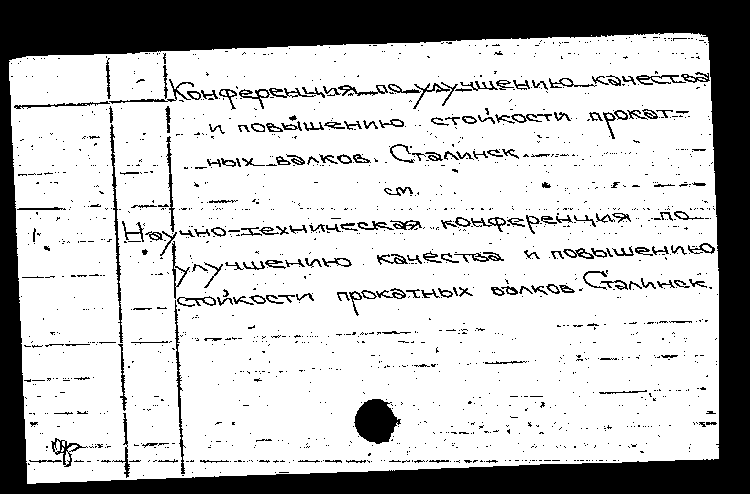 Конференция по улучшению качества
и повышению стойкости прокат-
ных валков. Сталинск.
см.
Научно-техническая конференция по
улучшению качества и повышению
стойкости прокатных валков. Сталинск.